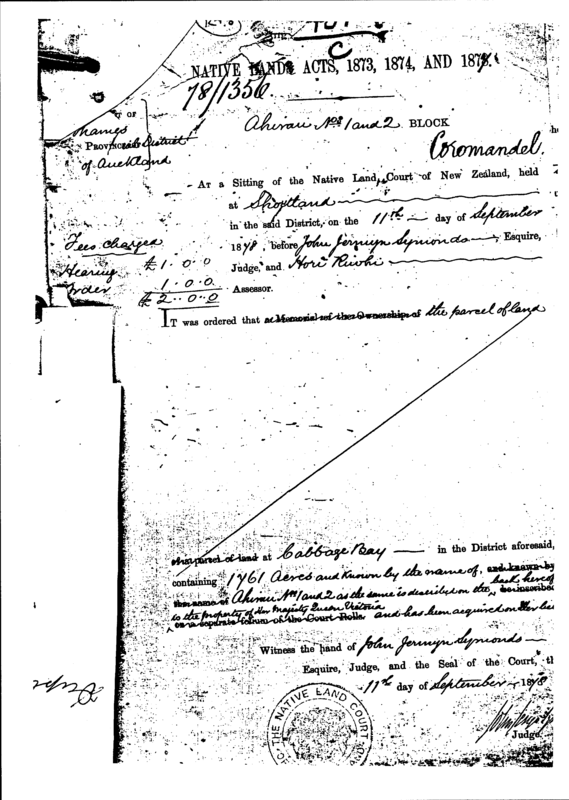 C
NATIVE LANDS ACTS, 1873, 1874, AND 1878.
78/1356.
OF
Thames
PROVINCIAL District
of Auckland
Ahirau Nos 1 and 2 BLOCK
Coromandel.
AT a Sitting of the Native Land Court of New Zealand, held
at Shortland
in the said District, on the 11th day of September
1878, before John Jermyn Symonds Esquire,
Judge, and Hori
Assessor.
Fees charged
Hearing £1. 0. 0
Order 1. 0. 0
£2. 0. 0
IT was ordered that a Memorial of the Ownership of the parcel of land
that parcel of land at Cabbage Bay in the District aforesaid,
containing 1761 Acres and known by the name of, and known by
the name of Ahirau Nos 1 and 2 as the same is described on the back hereof be inscribed
is the property of Her Majesty Queen Victoria
on a separate folium of the Court Rolls and has been acquired on
Witness the hand of John Jermyn Symonds
Esquire, Judge, and the Seal of the Court, th
11th day of September 1878
Judge.
THE NATIVE LAND COURT